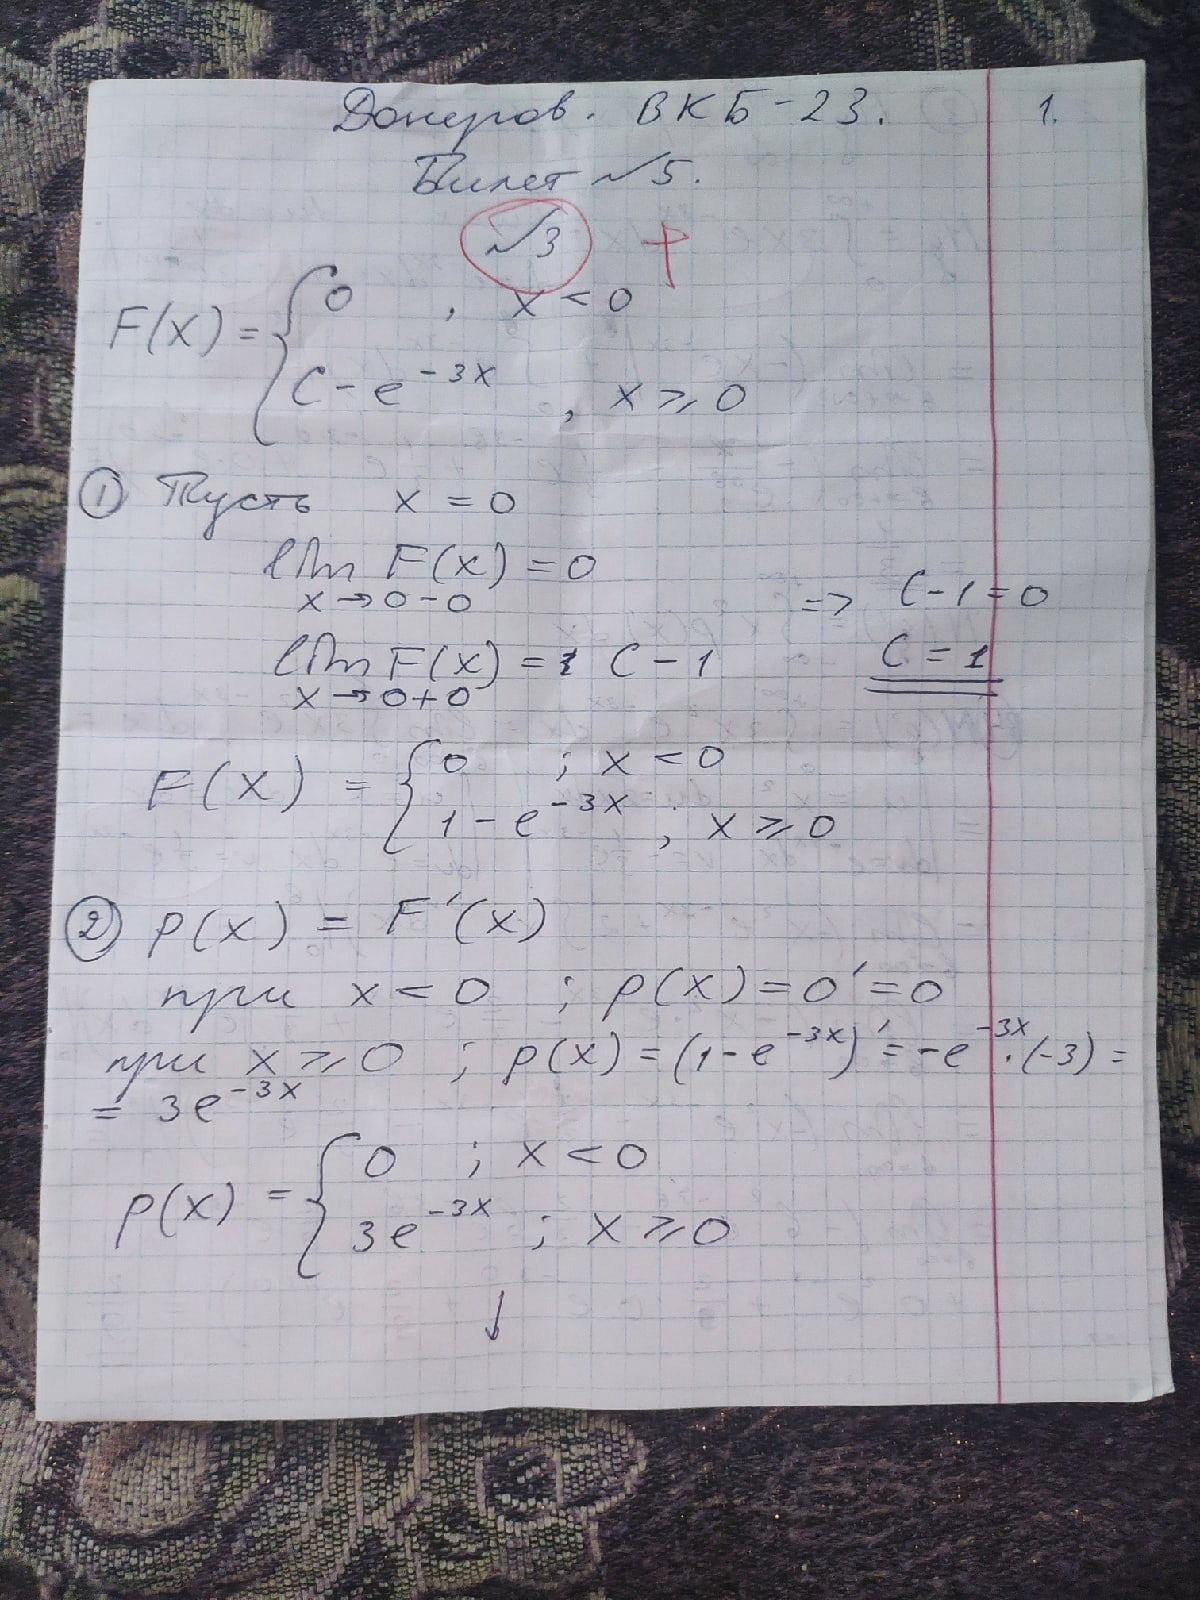 Донеров. ВКБ-23. 1.
Билет №5.
№3 +
F(x) = { 0 , x < 0
C - e^{-3x} , x ⩾ 0
① Пусть x = 0
lim F(x) = 0
x → 0-0 => C-1=0
lim F(x) = C - 1 C = 1
x → 0+0
F(x) = { 0 ; x < 0
1 - e^{-3x} , x ⩾ 0
② p(x) = F'(x)
при x < 0 ; p(x) = 0' = 0
при x ⩾ 0 ; p(x) = (1 - e^{-3x})' = -e^{-3x} · (-3) =
= 3e^{-3x}
p(x) = { 0 ; x < 0
3e^{-3x} ; x ⩾ 0
↓